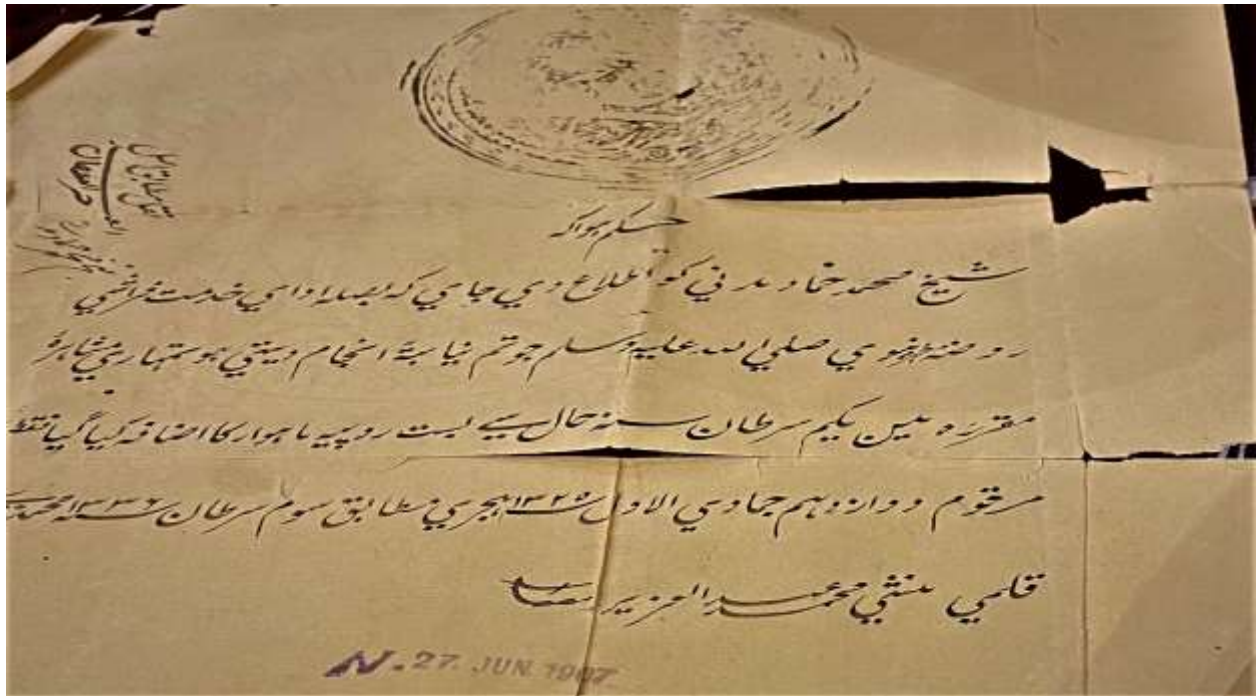 حکم ہوا کہ
شیخ محمد حماد مدنی کو اطلاع دی جاے کہ بصلہ اداے خدمت فراشی
روضہ نبوی صلی اللہ علیہ وسلم جو تم نیابۃً انجام دیتی ہو تمہاری مشاہرہ
مقررہ مین یکم سرطان سنہ حال سے بست روپیہ ماہوار کا اضافہ کیا گیا فقط
مرقوم دوازدہم جمادی الاول ۱۳۲۵ ہجری مطابق سوم سرطان سنہ ۱۳۳۶ محمدی
قلمی منشی محمد عبد العزیز
N. 27. JUN. 1907